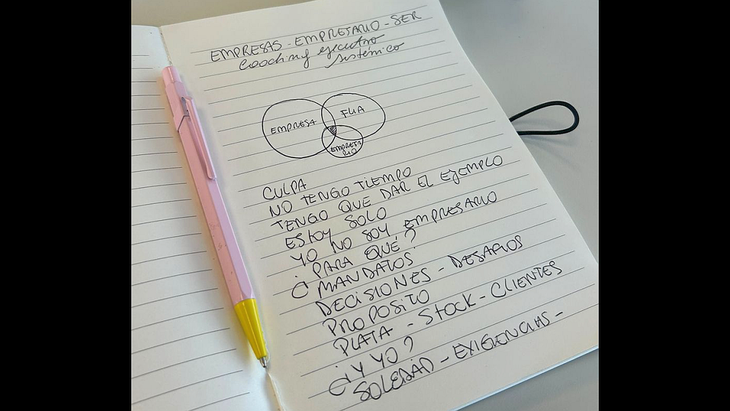 EMPRESAS - EMPRETARIO - SER
Coaching ejecutivo
sistémico
EMPRESA
FLIA
EMPRESA
RIO
CULPA
NO TENGO TIEMPO
TENGO QUE DAR EL EJEMPLO
ESTOY SOLO
YO NO SOY EMPRESARIO
¿PARA QUÉ?
MANDATOS
DECISIONES - DESAFIOS
PROPOSITO
PLATA - STOCK - CLIENTES
¿Y YO?
SOLEDAD - EXIGENCIAS -